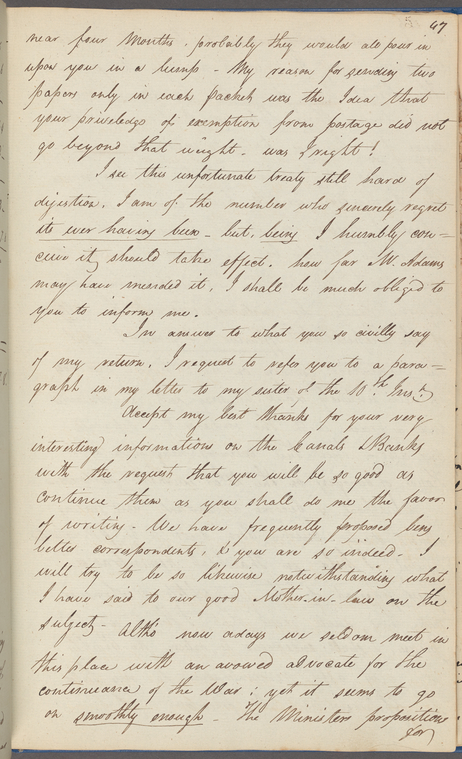 5 47
near four Months. probably they would all pour in
upon you in a lump - My reason for sending two
papers only in each packet was the Idea that
your priviledge of exemption from postage did not
go beyond that weight. was I right!
I see this unfortunate treaty still hard of
digestion. I am of the number who sincerely regret
its ever having been - but, being I humbly con=
ceive it should take effect. how far Mr. Adams
may have mended it, I shall be much obliged to
you to inform me.
In answer to what you so civilly say
of my return, I request to refer you to a para=
graph in my letter to my sister of the 10th Inst.
Accept my best thanks for your very
interesting information on the Canals & Banks
with the request that you will be so good as
continue them as you shall do me the favor
of writing - We have frequently proposed being
better correspondents, & you are so indeed. I
will try to be so likewise notwithstanding what
I have said to our good Mother-in-law on the
subject - Altho' now adays we seldom meet in
this place with an avowed advocate for the
continueance of the War; yet it seems to go
on smoothly enough. The Ministers proposition
for